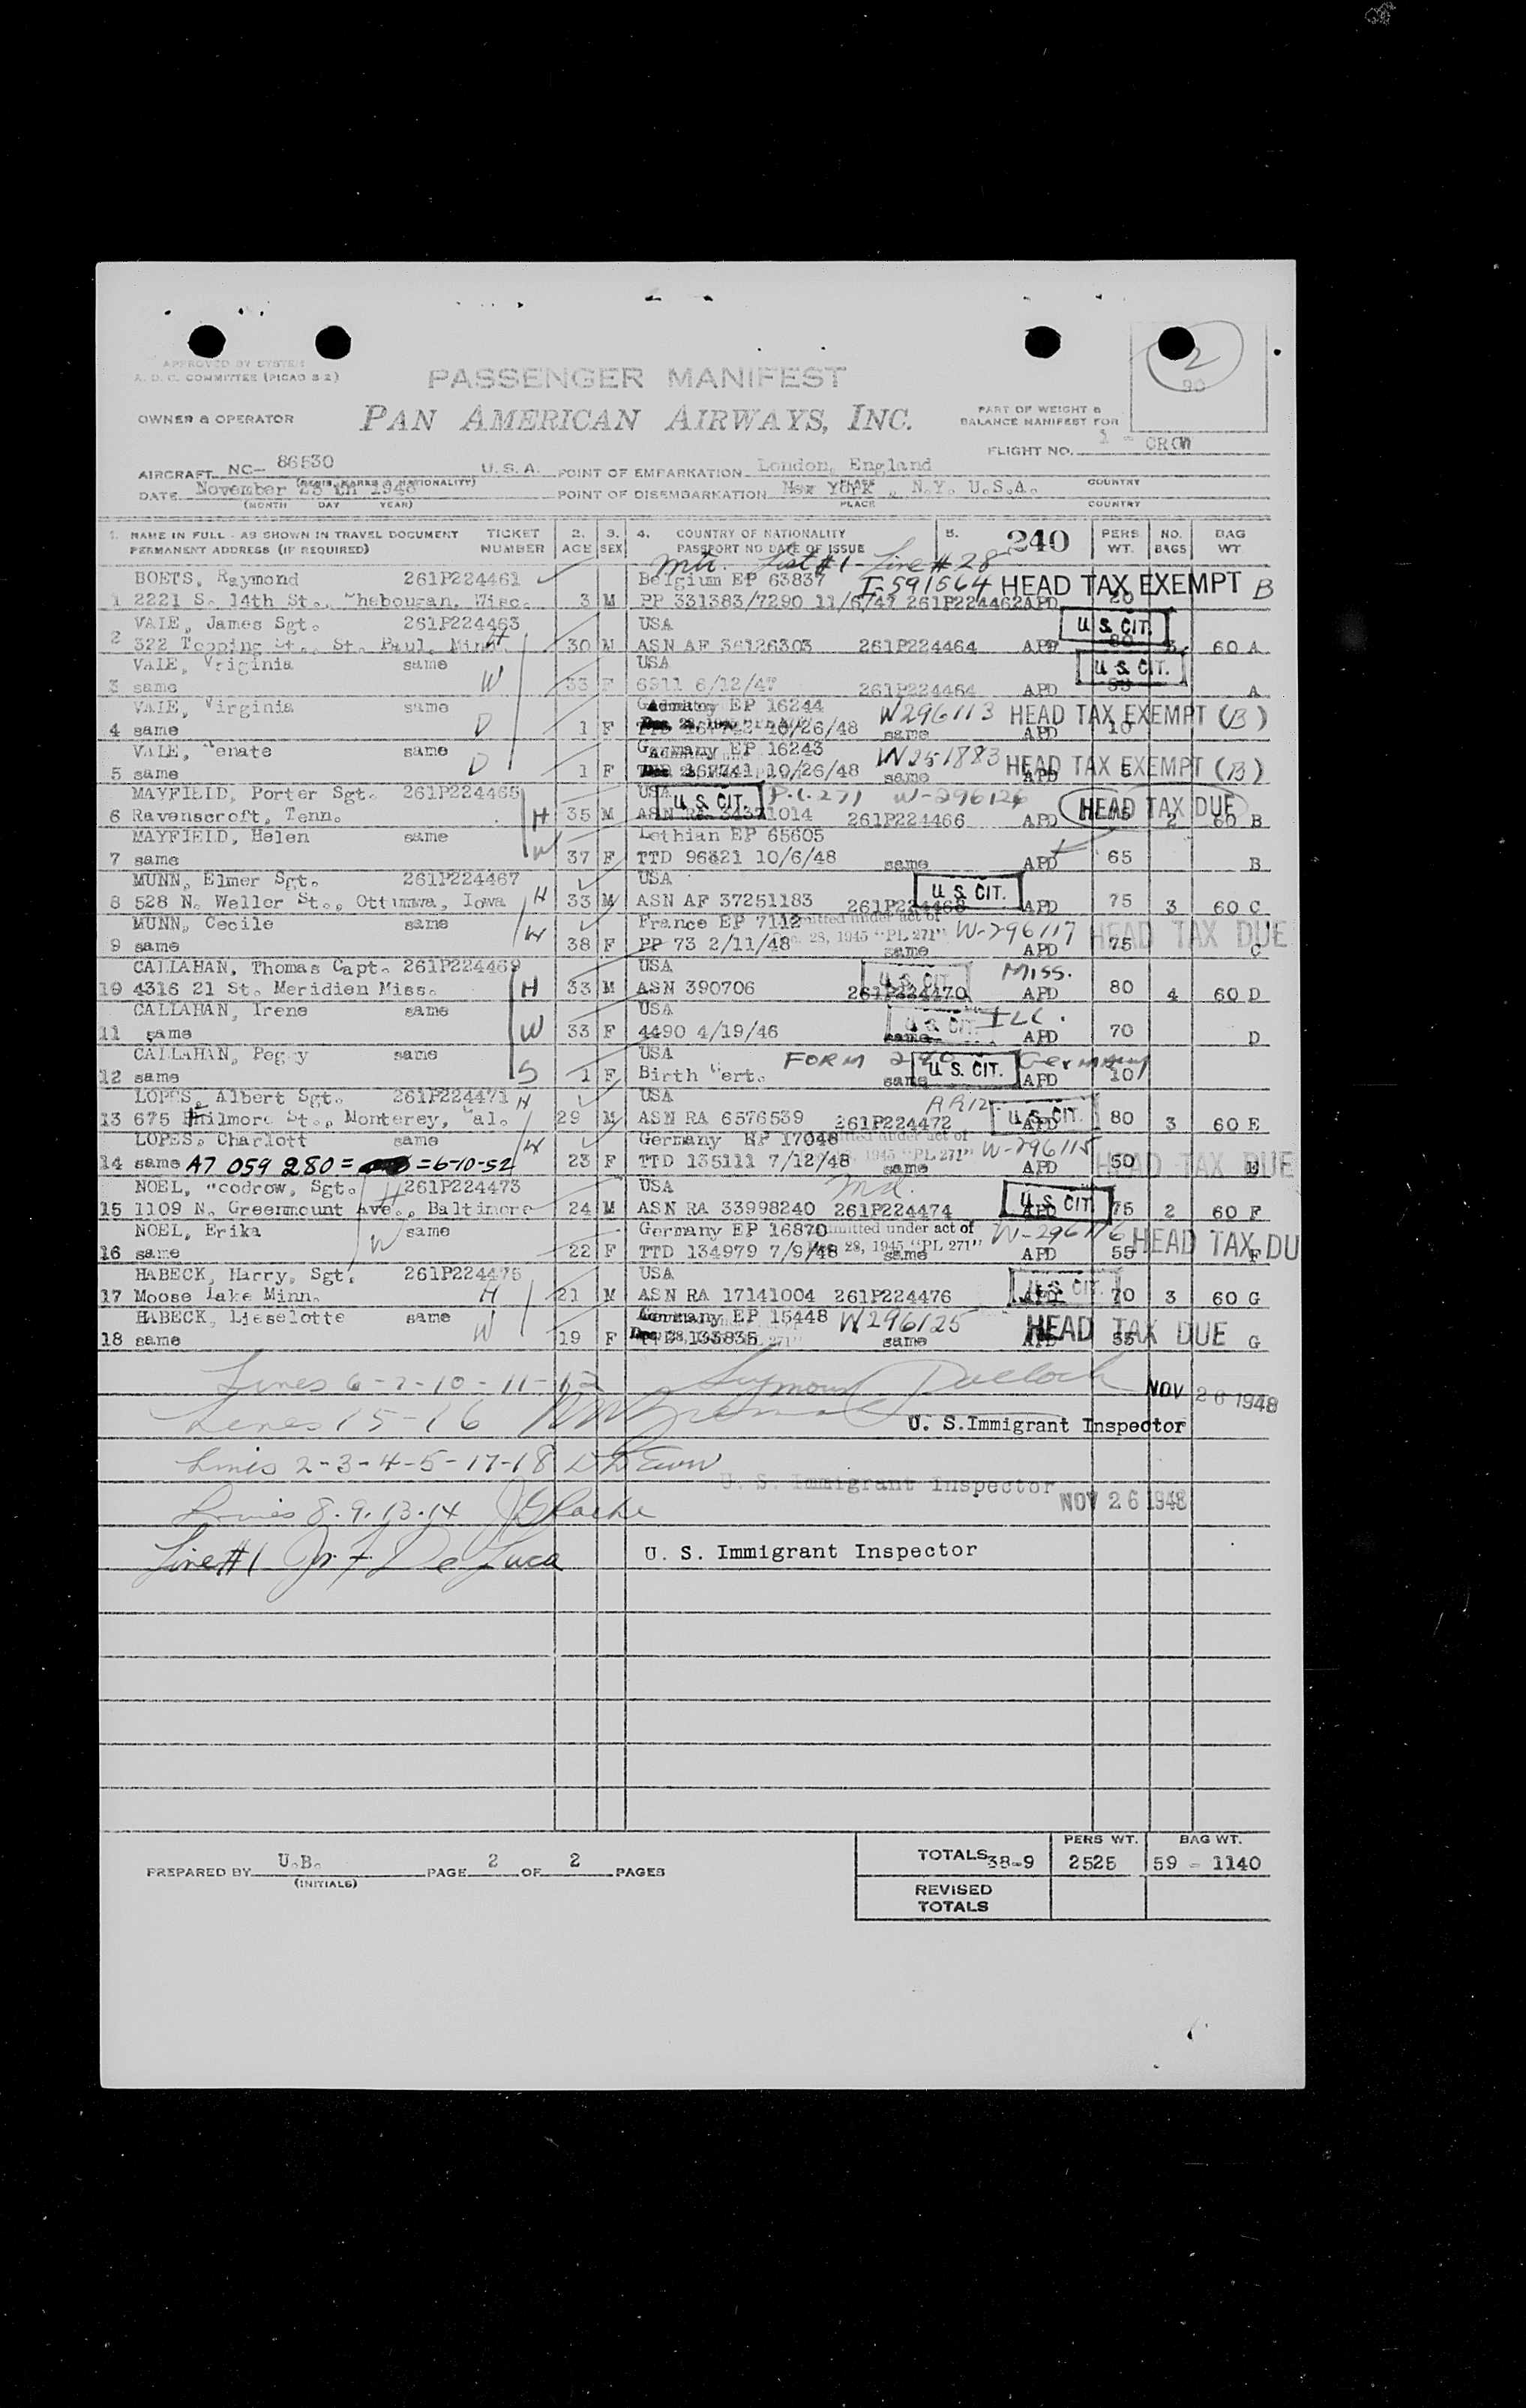 2
90
APPROVED BY SYSTEM
A. D. C. COMMITTEE (PICAO S 2)
PASSENGER MANIFEST
OWNER & OPERATOR PAN AMERICAN AIRWAYS, INC.
PART OF WEIGHT &
BALANCE MANIFEST FOR
FLIGHT NO. 1 -
AIRCRAFT NC- 86530 U. S. A. POINT OF EMBARKATION London, England
(REGIS. MARKS & NATIONALITY) PLACE COUNTRY
DATE November 25 th 1948 POINT OF DISEMBARKATION New York , N.Y. U.S.A.
(MONTH DAY YEAR) PLACE COUNTRY
1. NAME IN FULL - AS SHOWN IN TRAVEL DOCUMENT TICKET 2. 3. 4. COUNTRY OF NATIONALITY 5. 240 PERS NO. BAG
PERMANENT ADDRESS (IF REQUIRED) NUMBER AGE SEX PASSPORT NO DATE OF ISSUE WT. BAGS WT.
List #1 - Line # 28
BOETS, Raymond 261P224461 Belgium EP 63837 I-591564 HEAD TAX EXEMPT B
1 2221 S. 14th St., hebougan, Wisc. 3 M PP 331383/7290 11/6/47 261P224462 APD 20
VALE, James Sgt. 261P224463 USA U. S. CIT.
2 322 Topping St., St. Paul, Minn. H 30 M ASN AF 36126303 261P224464 APD 80 3 60 A
VALE, Vriginia same USA U. S. CIT.
3 same W 33 F 6911 6/12/47 261P224464 APD 55 A
VALE, Virginia same Germany EP 16244 W296113 HEAD TAX EXEMPT (B)
4 same D 1 F 10/26/48 same APD 10
VALE, enate same Germany EP 16243 W251883 HEAD TAX EXEMPT (B)
5 same D 1 F 10/26/48 same APD 5
MAYFIELD, Porter Sgt. 261P224465 USA U. S. CIT. P.L.271 W-296126 HEAD TAX DUE
6 Ravenscroft, Tenn. H 35 M ASN RA 34371014 261P224466 APD 2 60 B
MAYFIELD, Helen same Lothian EP 65605
7 same W 37 F TTD 96821 10/6/48 same APD 65 B
MUNN, Elmer Sgt. 261P224467 USA U. S. CIT.
8 528 N. Weller St., Ottumwa, Iowa H 33 M ASN AF 37251183 261P224468 APD 75 3 60 C
MUNN, Cecile same France EP 7112 Admitted under act of W-296117 HEAD TAX DUE
9 same W 38 F PP 73 2/11/48 Dec. 28, 1945 "PL 271" same APD 75 C
CALLAHAN, Thomas Capt. 261P224469 USA U. S. CIT. MISS.
10 4316 21 St. Meridien Miss. H 33 M ASN 390706 261P224470 APD 80 4 60 D
CALLAHAN, Irene same USA U. S. CIT. ILL.
11 same W 33 F 4490 4/19/46 same APD 70 D
CALLAHAN, Peggy same USA FORM U. S. CIT. Germany
12 same S 1 F Birth ert. same APD 10
LOPES, Albert Sgt. 261P224471 H USA ARIZ. U. S. CIT.
13 675 Filmore St., Monterey, Cal. 29 M ASN RA 6576539 261P224472 APD 80 3 60 E
LOPES, Charlott same W Germany EP 17048 Admitted under act of W-296115
14 same A7 059 280 = = 6-10-52 23 F TTD 135111 7/12/48 1945 "PL 271" same APD 50 HEAD TAX DUE E
NOEL, oodrow, Sgt. 261P224473 USA Md. U. S. CIT.
15 1109 N. Greenmount Ave., Baltimore H 24 M ASN RA 33998240 261P224474 APD 75 2 60 F
NOEL, Erika same Germany EP 16870 Admitted under act of W-296116 HEAD TAX DU
16 same W 22 F TTD 134979 7/9/48 Dec. 28, 1945 "PL 271" same APD 55 F
HABECK, Harry, Sgt. 261P224475 USA U. S. CIT.
17 Moose Lake Minn. H 21 M ASN RA 17141004 261P224476 APD 70 3 60 G
HABECK, Lieselotte same Germany EP 15448 W296125 HEAD TAX DUE
18 same W 19 F TTD 133835 same APD 55 G
Lines 6-7-10-11-12 Seymour NOV 26 1948
Lines 15-16 U. S.Immigrant Inspector
Lines 2-3-4-5-17-18
U. S. Immigrant Inspector NOV 26 1948
Lines 8.9.13.14
Line #1 De Luca U. S. Immigrant Inspector
TOTALS 38-9 PERS WT. 2525 BAG WT. 59 - 1140
PREPARED BY U.B. PAGE 2 OF 2 PAGES
(INITIALS)
REVISED
TOTALS